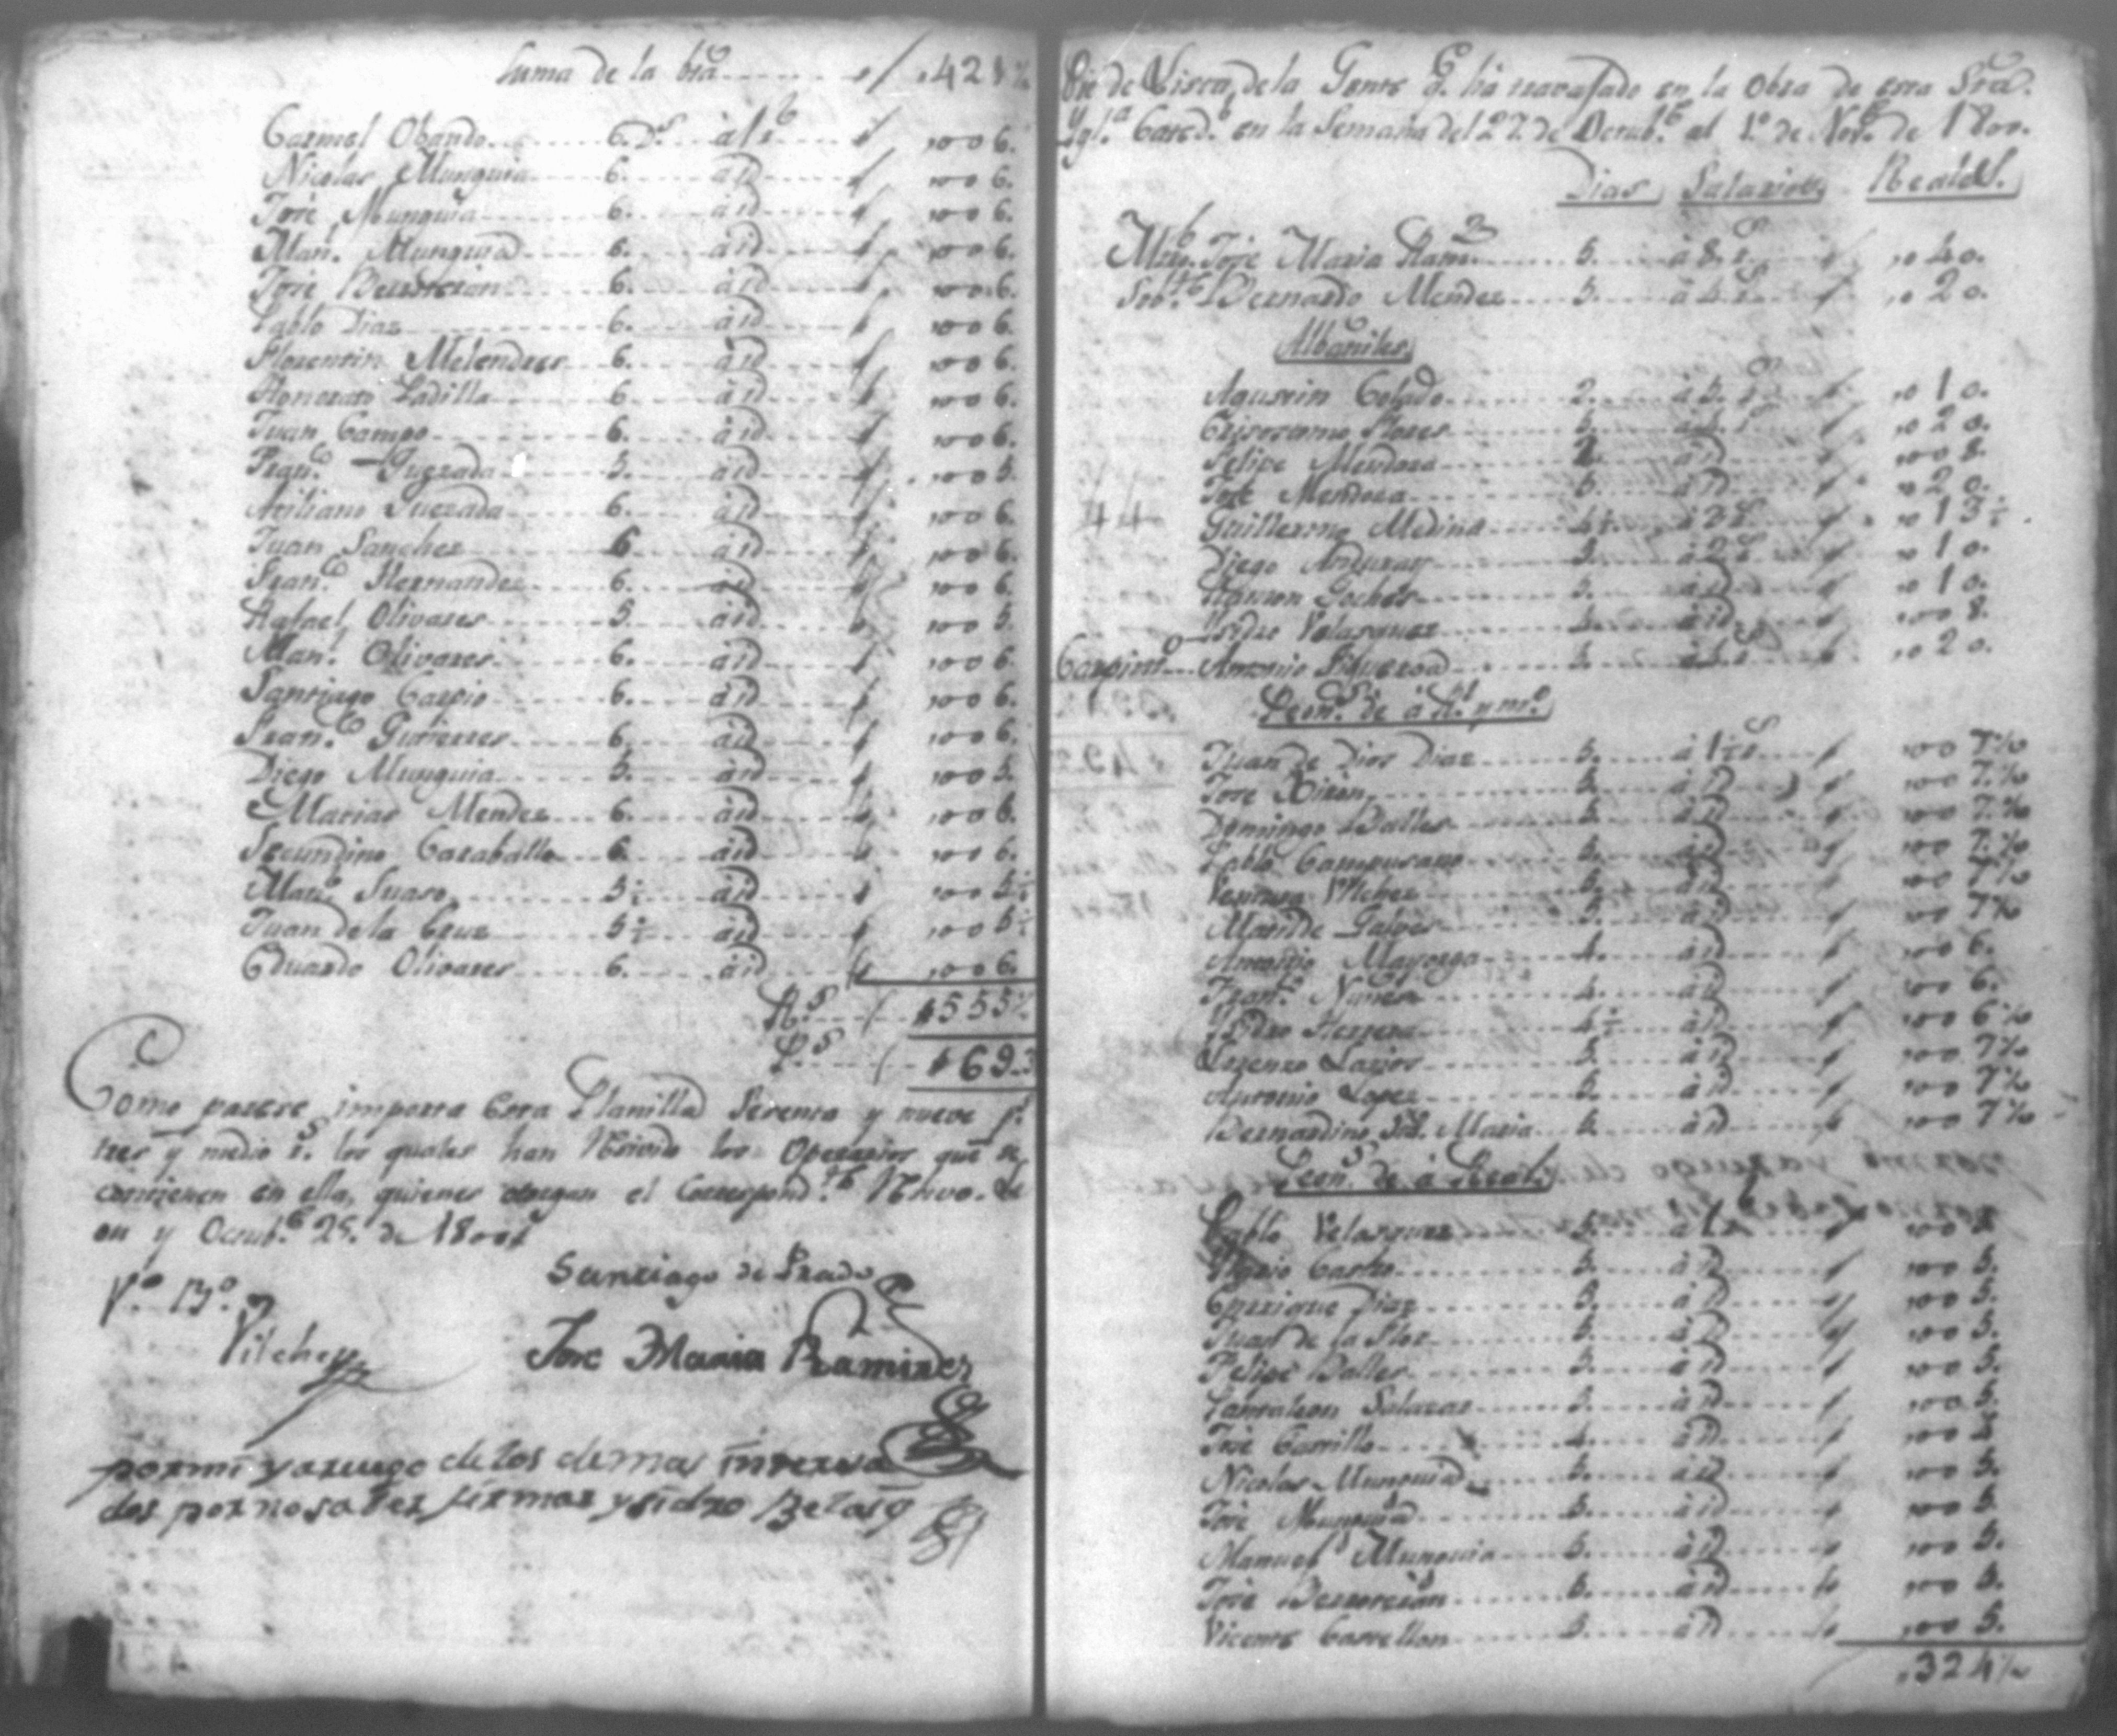 Suma de la bta ,,421½
Carmel Obando 6. ds. à 1 r. ,,006.
Nicolas Munguia 6. à id ,,006.
José Munguia 6. à id ,,006.
Man.l Munguia 6. à id ,,006.
José 6. à id ,,006.
Pablo Diaz 6. à id ,,006.
Florentin Melendres 6. à id ,,006.
Honorato Padilla 6. à id ,,006.
Juan Campo 6. à id ,,006.
Fran.co Quezada 5. à id ,,005.
Atiliano Quezada 6. à id ,,006.
Juan Sanchez 6 à id ,,006.
Fran.co Hernandez 6. à id ,,006.
Rafael Olivares 5. à id ,,005.
Man.l Olivares 6. à id ,,006
Santiago Carpio 6. à id ,,006
Fran.co Gutierres 6. à id ,,006.
Diego Munguia 5. à id ,,005.
Matias Mendez 6. à id ,,006.
Secundino Caraballo 6 à id ,,006.
Man.l Suaso 5½ à id ,,005½
Juan de la Cruz 5½ à id ,,005½
Eduardo Olivares 6. à id ,,006.
R.s 555½
P.s 69..3
Como parese importa esta Planilla Secenta y nueve p.s
tres y medio r.s los quales han resivido los Operarios que se
contienen en ella, quienes otorgan el Correspond.te Resivo. Le
on y Octub.e 25. de 1800
V.o B.o
Vilchez
Santiago de Prado
Jose Maria Ramirez
por mi y a ruego de los demas interesa
dos por no saber firmar ysidro Belasq
Pie de Lista de la Gente q.e ha travajado en la Obra de esta Sta.
Ygl.a Cated.l en la Semana del 27. de Octub.e al 1.o de Nov.e de 1800.
Dias Salarios Reales.
Mtro. José Maria Ram.z 5. à 8. r.s ,,40.
Sob.te Bernardo Mendez 5. à 4 r.s ,,20.
Albañiles
Agustin Colado 2. à 5. r.s ,,10.
Crisostomo Flores 5. à 4 r.s ,,20.
Felipe Mendoza 2. à id ,,008.
José Mendoza 5. à id ,,20.
Guillermo Medina 4½ à 3 r.s ,,13½.
Diego Anduray 5. à 2 r.s ,,10.
Ramon Goches 5. à id ,,10.
Ysidro Velasquez 4. à id ,,008.
Carpint.o Antonio Figueroa 5. à 4 r.s ,,20.
Peon.s de à R.l y m.o
Juan de Dios Diaz 5. à 1½ r.s ,,007½
José Xirón 5. à id ,,007½
Domingo Balles 5. à id ,,007½
Pablo Campusano 5. à id ,,007½
Ventura Vilchez 5. à id ,,007½
Matilde Galves 5. à id ,,007½
Antonio Mayorga 4. à id ,,006.
Fran.co Nuñes 4. à id ,,006.
Ysidro Herrera 4½ à id ,,006½
Lorenzo Larios 5. à id ,,007½
Antonio Lopez 5. à id ,,007½
Bernardino Sta. Maria 5. à id ,,007½
Peon.s de à Real.
Pablo Velasquez 5. à 1 r. ,,005
Castro 5. à id ,,005.
Enrrique Diaz 5. à id ,,005.
Juan de la Flor 5. à id ,,005.
Felipe Balles 5. à id ,,005.
Pantaleon Salazar 5. à id ,,005.
José Carrillo 4. à id ,,004
Nicolas Munguia 5. à id ,,005.
José Munguia 5. à id ,,005.
Manuel Munguia 5. à id ,,005.
José 5. à id ,,005.
Vicente Castellon 5. à id ,,005.
,324½